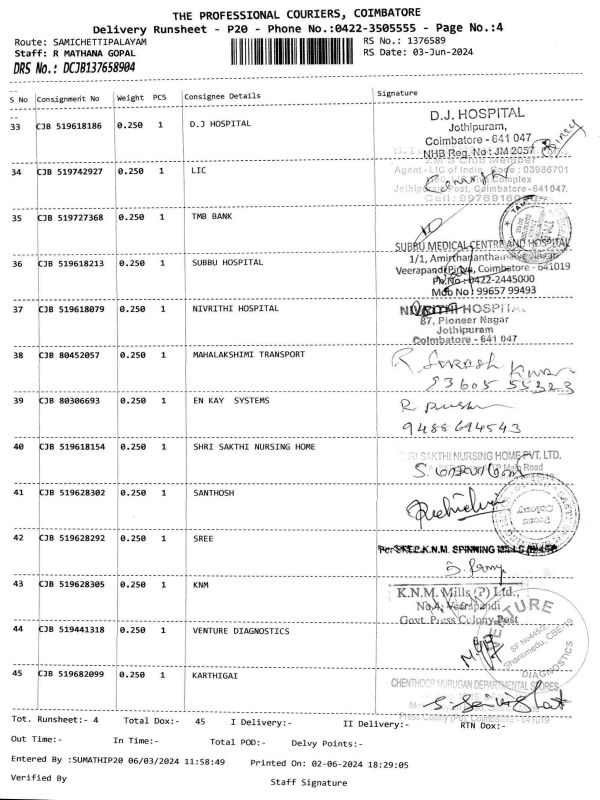 THE PROFESSIONAL COURIERS, COIMBATORE
Delivery Runsheet - P20 - Phone No.:0422-3505555 - Page No.:4
Route: SAMICHETTIPALAYAM
Staff: R MATHANA GOPAL
DRS No.: DCJB137658904
RS No.: 1376589
RS Date: 03-Jun-2024
S No Consignment No Weight PCS Consignee Details Signature
33 CJB 519618186 0.250 1 D.J HOSPITAL
D.J. HOSPITAL
Jothipuram,
Coimbatore - 641 047
NHB Reg. No: JM 2057
34 CJB 519742927 0.250 1 LIC
ZM'S Club Member
Agent - LIC of India, Code : 03986701
Complex
Jothipuram Post, Coimbatore-641047.
35 CJB 519727368 0.250 1 TMB BANK
36 CJB 519618213 0.250 1 SUBBU HOSPITAL
SUBBU MEDICAL CENTRE AND HOSPITAL
1/1, Amirthanantham
Veerapandi Pirivu, Coimbatore - 641019
Ph.No : 0422-2445000
Mob No : 99657 99493
37 CJB 519618079 0.250 1 NIVRITHI HOSPITAL
HOSPITAL
87, Pioneer Nagar
Jothipuram
Coimbatore - 641 047
38 CJB 80452057 0.250 1 MAHALAKSHIMI TRANSPORT
R Suresh Kumar
93605 55323
39 CJB 80306693 0.250 1 EN KAY SYSTEMS
R
9488694543
40 CJB 519618154 0.250 1 SHRI SAKTHI NURSING HOME
SHRI SAKTHI NURSING HOME PVT. LTD.
Main Road
41 CJB 519628302 0.250 1 SANTHOSH
42 CJB 519628292 0.250 1 SREE
Per SREE K.N.M. SPINNING MILLS
43 CJB 519628305 0.250 1 KNM
K.N.M. Mills (P) Ltd.,
No.4, Veerapandi
Govt. Press Colony Post
44 CJB 519441318 0.250 1 VENTURE DIAGNOSTICS
VENTURE
SF No445/2
Shanthimedu, CBE-19
DIAGNOSTICS
45 CJB 519682099 0.250 1 KARTHIGAI
CHENTHOOR MURUGAN DEPARTMENTAL STORES
Press Colony (PO), Coimbatore - 641019
Tot. Runsheet:- 4 Total Dox:- 45 I Delivery:- II Delivery:- RTN Dox:-
Out Time:- In Time:- Total POD:- Delvy Points:-
Entered By :SUMATHIP20 06/03/2024 11:58:49 Printed On: 02-06-2024 18:29:05
Verified By Staff Signature